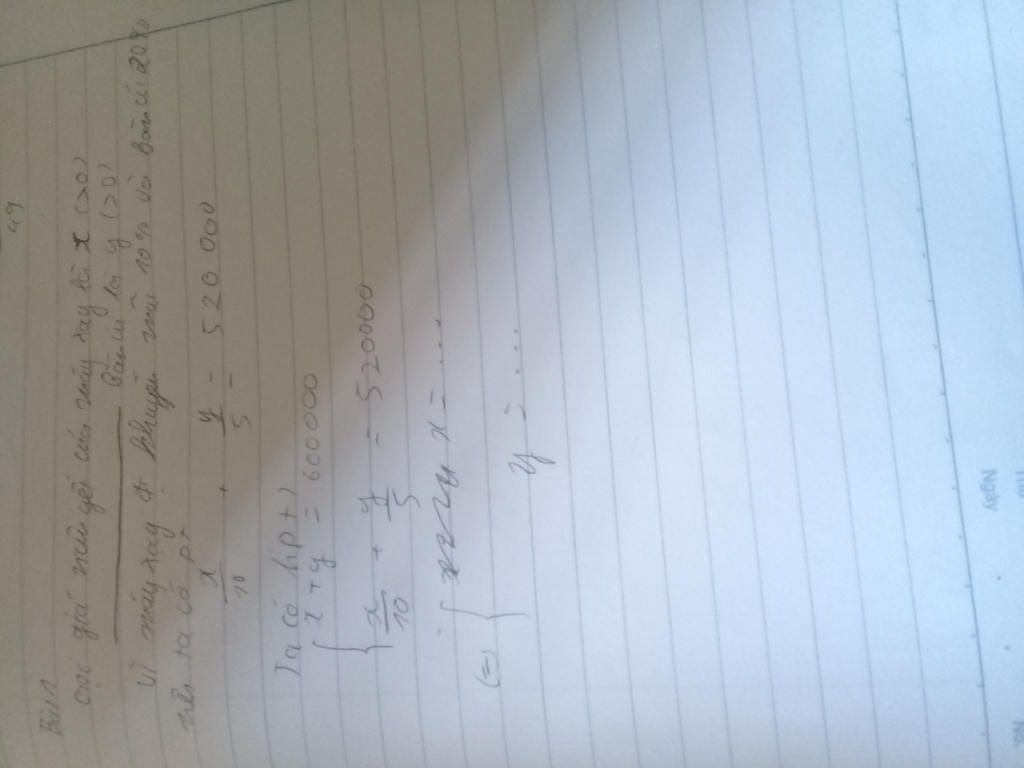 Bài 1
Gọi giá niêm yết của máy xay là x (>0)
Bàn ủi là y (>0)
Vì máy xay đc khuyến mãi 10% và bàn ủi 20%
nên ta có pt
x/10 + y/5 = 520 000
Ta có hpt
x + y = 600000
x/10 + y/5 = 520000
(=) { x = ....
y = ....
Ngày
No.